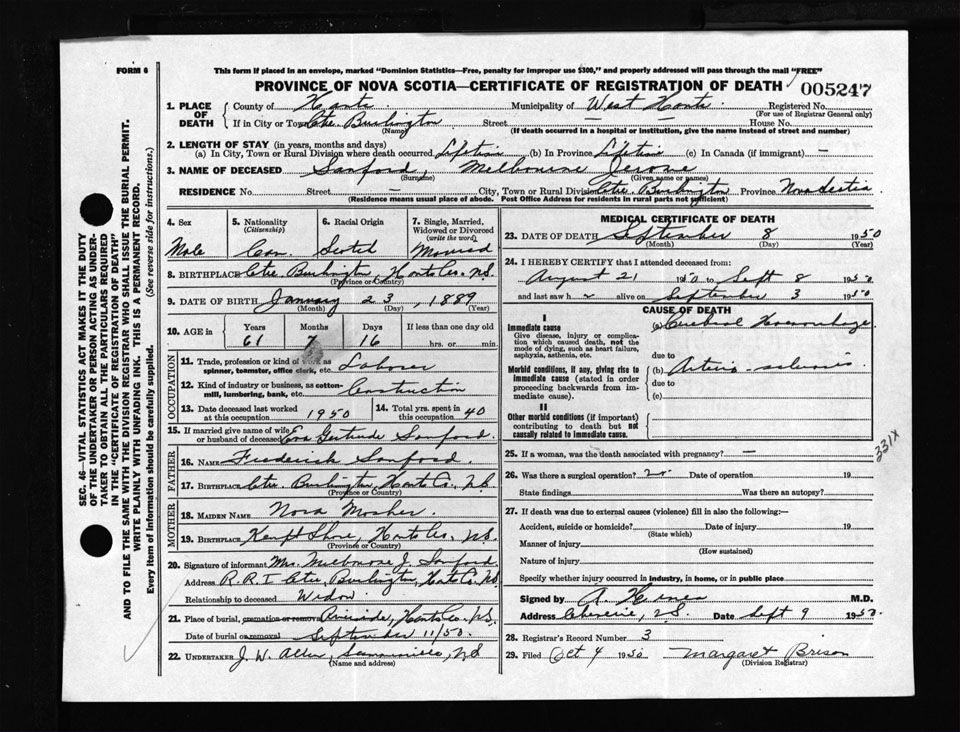 FORM 6
This form if placed in an envelope, marked "Dominion Statistics—Free, penalty for improper use $300," and properly addressed will pass through the mail "FREE"
PROVINCE OF NOVA SCOTIA—CERTIFICATE OF REGISTRATION OF DEATH
005247
1. PLACE OF DEATH
County of Hants Municipality of West Hants Registered No.
(For use of Registrar General only)
If in City or Town Ctre. Burlington Street — House No. —
(Name) (If death occurred in a hospital or institution, give the name instead of street and number)
2. LENGTH OF STAY (in years, months and days)
(a) In City, Town or Rural Division where death occurred Lifetime (b) In Province Lifetime (c) In Canada (if immigrant) —
3. NAME OF DECEASED Sanford, Melbourne Jerome
(Surname) (Given name or names)
RESIDENCE No. Street — City, Town or Rural Division Ctre. Burlington Province Nova Scotia
(Residence means usual place of abode. Post Office Address for residents in rural parts not sufficient)
4. Sex
Male
5. Nationality
(Citizenship)
Can.
6. Racial Origin
Scotch
7. Single, Married, Widowed or Divorced
(write the word)
Married
8. BIRTHPLACE Ctre. Burlington, Hants Co., N.S.
(Province or Country)
9. DATE OF BIRTH January 23, 1889
(Month) (Day) (Year)
10. AGE in
Years Months Days If less than one day old
61 7 16 hrs. or min.
OCCUPATION
11. Trade, profession or kind of work as spinner, teamster, office clerk, etc. Laborer
12. Kind of industry or business, as cotton-mill, lumbering, bank, etc. Construction
13. Date deceased last worked at this occupation 1950
14. Total yrs. spent in this occupation 40
15. If married give name of wife or husband of deceased Eva Gertrude Sanford
FATHER
16. NAME Frederick Sanford
17. BIRTHPLACE Ctre. Burlington, Hants Co., N.S.
(Province or Country)
MOTHER
18. MAIDEN NAME Nora Mosher
19. BIRTHPLACE Kempt Shore, Hants Co., N.S.
(Province or Country)
20. Signature of informant Mrs. Melbourne J. Sanford
Address R.R.1 Ctre. Burlington, Hants Co. N.S.
Relationship to deceased Widow
21. Place of burial, cremation or removal Riverside, Hants Co. N.S.
Date of burial or removal September 11/50.
22. UNDERTAKER J. W. Allen, Summerville, N.S.
(Name and address)
MEDICAL CERTIFICATE OF DEATH
23. DATE OF DEATH September 8 1950
(Month) (Day) (Year)
24. I HEREBY CERTIFY that I attended deceased from:
August 21 1950 to Sept 8 1950
and last saw h alive on September 3 1950
CAUSE OF DEATH
I
Immediate cause
Give disease, injury or complication which caused death, not the mode of dying, such as heart failure, asphyxia, asthenia, etc.
(a) Cerebral Haemorrhage
due to
Morbid conditions, if any, giving rise to immediate cause (stated in order proceeding backwards from immediate cause).
(b) Arterio-sclerosis
due to
(c)
II
Other morbid conditions (if important) contributing to death but not causally related to immediate cause.
331X
25. If a woman, was the death associated with pregnancy? —
26. Was there a surgical operation? no Date of operation 19
State findings Was there an autopsy?
27. If death was due to external causes (violence) fill in also the following:—
Accident, suicide or homicide? Date of injury 19
(State which)
Manner of injury
(How sustained)
Nature of injury
Specify whether injury occurred in industry, in home, or in public place
Signed by M.D.
Address Cheverie, N.S. Date Sept 9 1950
28. Registrar's Record Number 3
29. Filed Oct 4 1950 Margaret Brison
(Division Registrar)
SEC. 46—VITAL STATISTICS ACT MAKES IT THE DUTY OF THE UNDERTAKER OR PERSON ACTING AS UNDERTAKER TO OBTAIN ALL THE PARTICULARS REQUIRED IN THE "CERTIFICATE OF REGISTRATION OF DEATH"
AND TO FILE THE SAME WITH THE DIVISION REGISTRAR WHO SHALL ISSUE THE BURIAL PERMIT.
WRITE PLAINLY WITH UNFADING INK. THIS IS A PERMANENT RECORD.
Every item of information should be carefully supplied. (See reverse side for instructions.)